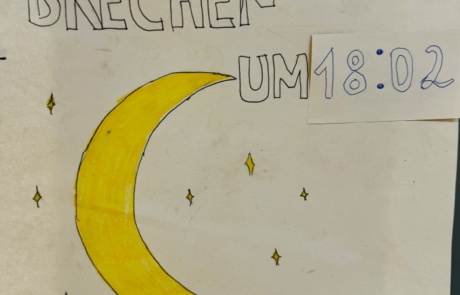 BRECHEN
UM 18:02